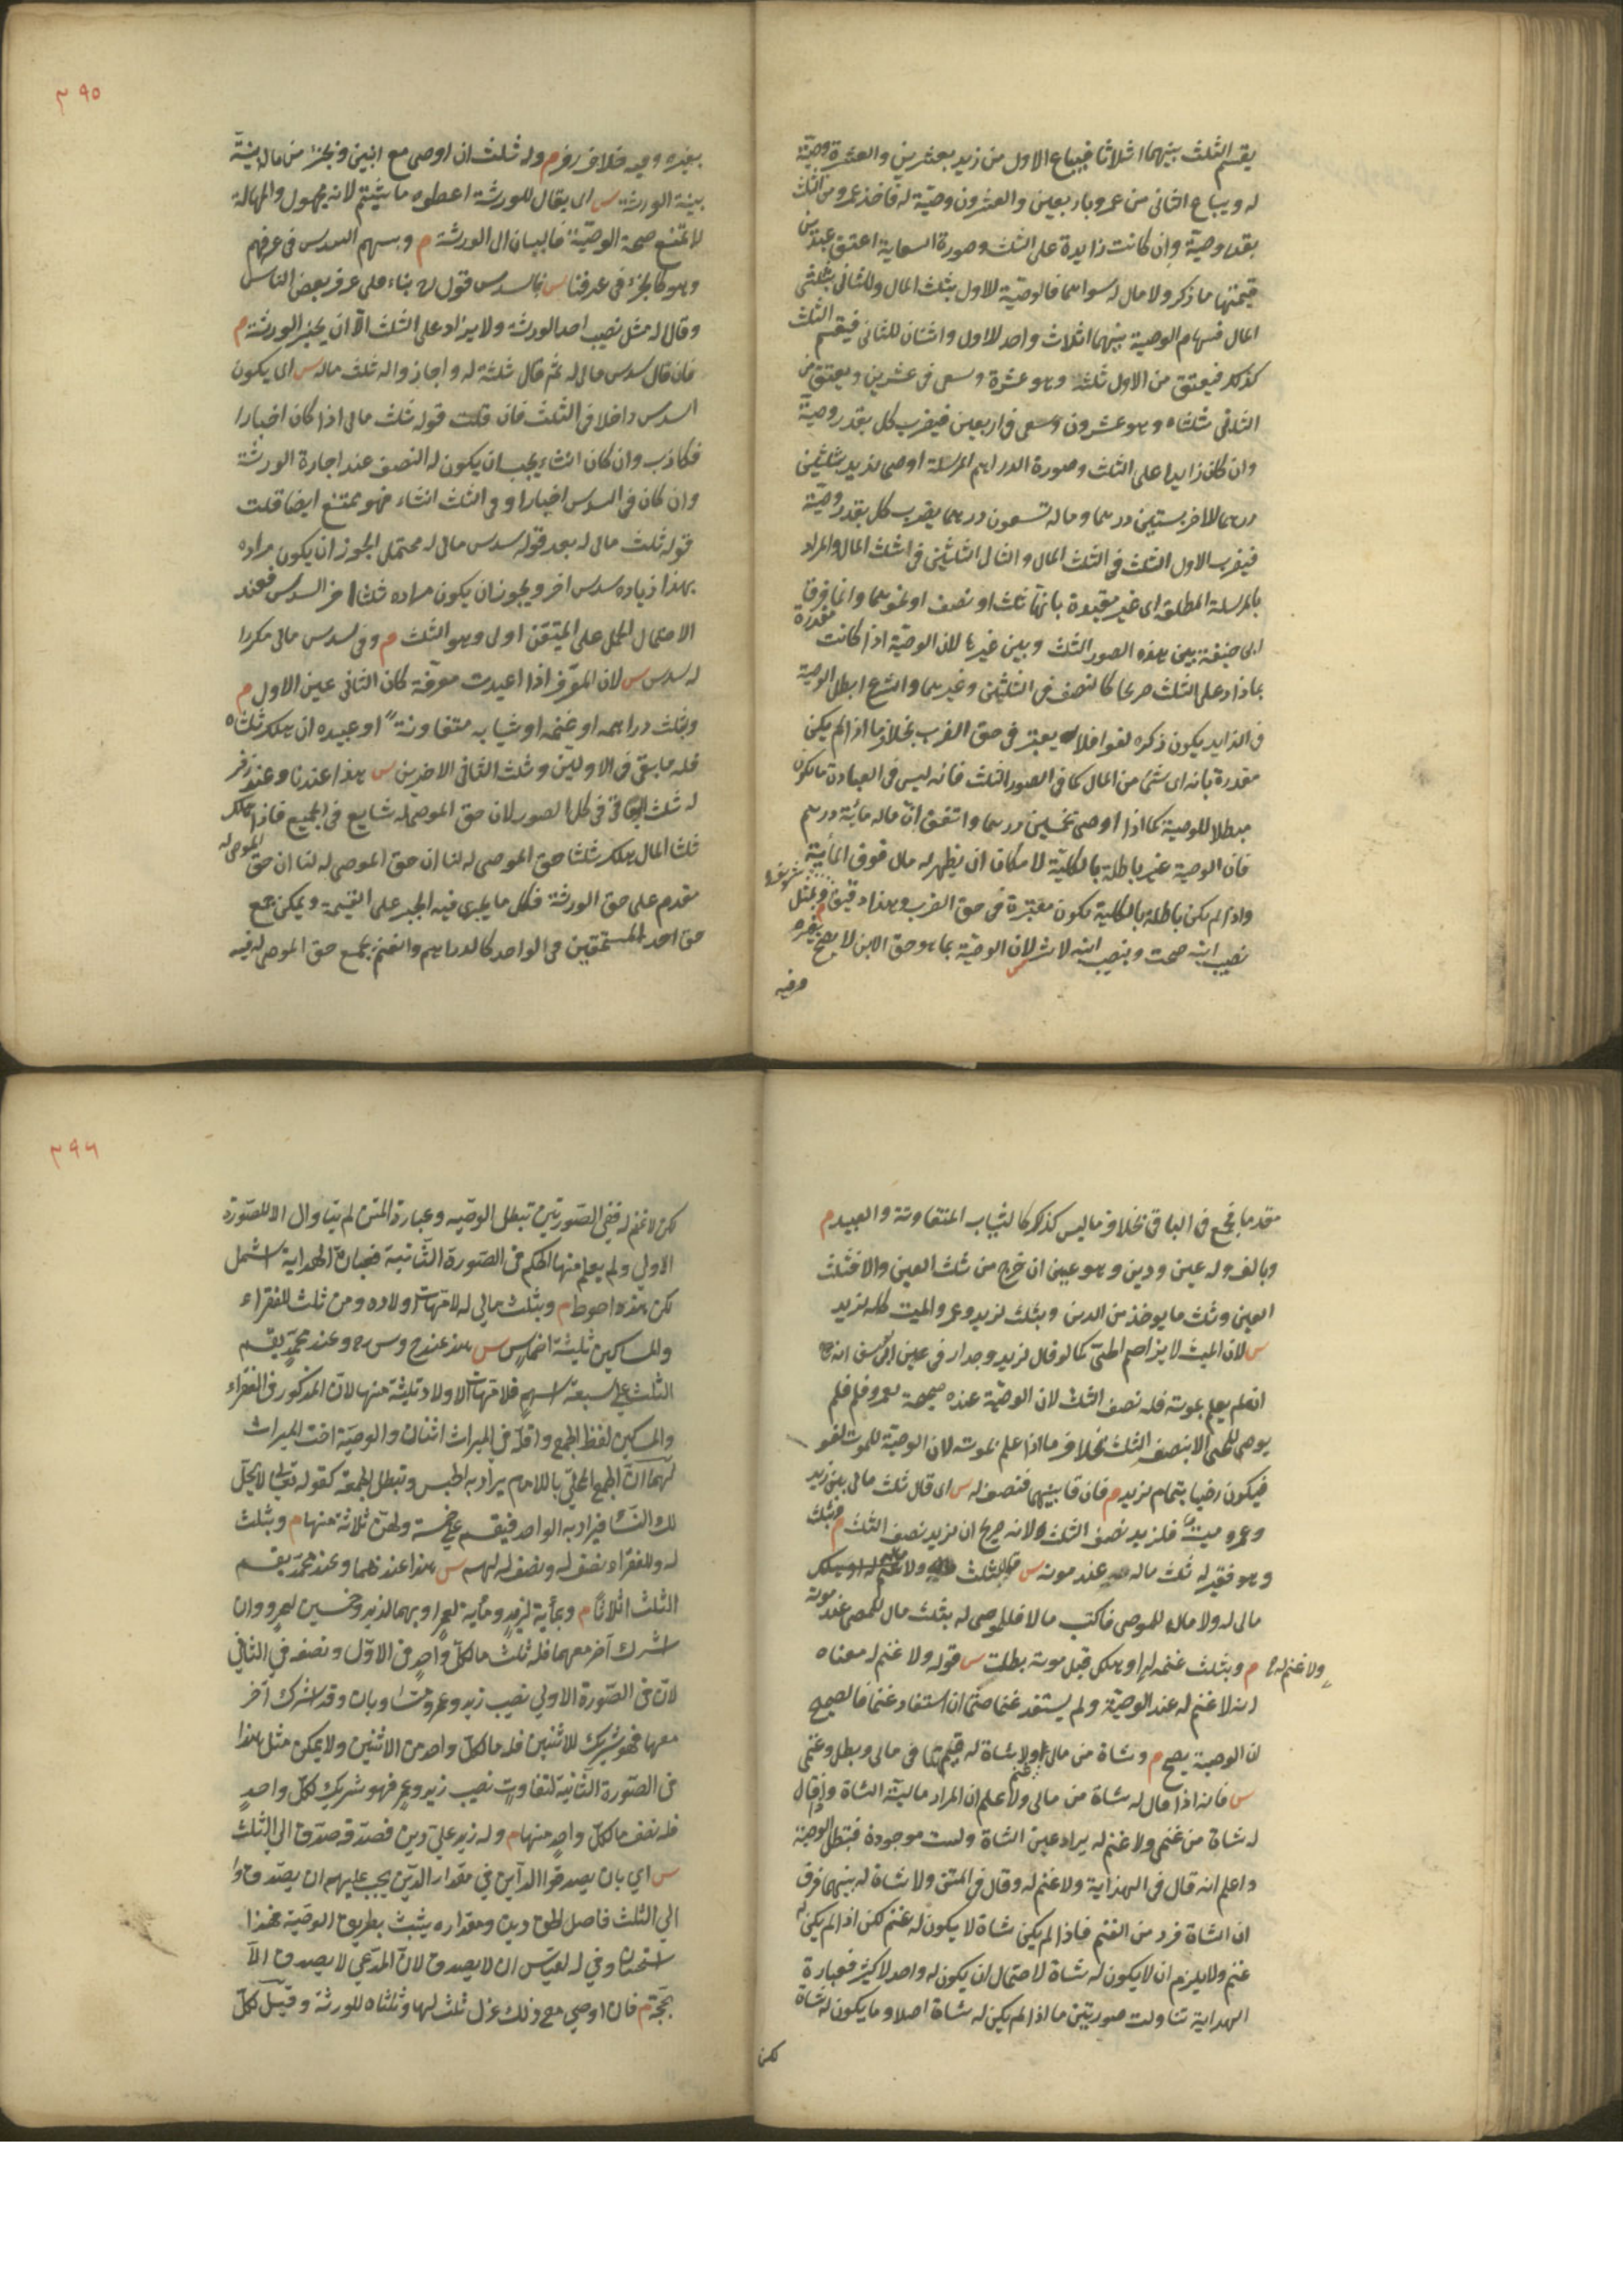 يقسم الثلث بينهما اثلاثا فيباع الاول من زيد بعشرين والعشرة وصية
له ويباع الثانى من عمرو باربعين والعشرون وصية له فاخذ عمرو من الثلث
بقدر وصية وان كانت زايدة على الثلث وصورة السعاية اعتق عبدين
قيمتهما ما ذكر ولا مال له سواهما فالوصية للاول بثلث المال وللثانى بثلثى
المال فسهام الوصية بينهما اثلاث واحد للاول واثنان للثانى فيقسم الثلث
كذلك فيعتق من الاول ثلثه وهو عشرة وسعى فى عشرين ويعتق من
الثانى ثلثاه وهو عشرون وسعى فى اربعين فيضرب كل بقدر وصية
وان كان زايدا على الثلث وصورة الدراهم المرسلة اوصى لزيد بثلثين
درهما للاخر بستين درهما وماله تسعون درهما يضرب كل بقدر وصية
فيضرب الاول الثلث فى الثلث المال والثانى الثلثين فى الثلث المال والمراد
بالمرسلة المطلقة اى غير مقيدة بانها ثلث او نصف او نحوهما وانما فرق
ابى حنيفة بين هذه الصور الثلث وبين غيرها لان الوصية اذا كانت مقدرة
بما زاد على الثلث صريحا كالنصف فى الثلثين وغيرهما والشرع ابطل الوصية
فى الزايد يكون ذكره لغوا فلا يعتبر فى حق الضرب بخلاف ما اذا لم يكن
مقدرة بانه اى شئ من المال كما فى الصور الثلث فانه ليس فى العبادة ما يكون
مبطلا للوصية كما اذا اوصى بخمسين درهما واتفق ان ماله مائة درهم
فان الوصية غير باطلة بالكلية لامكان ان يظهر له مال فوق المأية
واذا لم يكن باطلة بالكلية يكون معتبرة فى حق الضرب وهذا دقيق وبمثل
نصيب ابنه صحت وبنصيب ابنه لا س لان الوصية بما هو حق الابن لا يصح بغيره
وفيه
٣٩٥
بغيره وفيه خلاف زفر م وله ثلث ان اوصى مع ابنين وبجزء من ماله بينة
بينة الورثة س اى يقال للورثة اعطوه ما شئتم لانه مجهول والجهالة
لا تمنع صحة الوصية فالبيان الى الورثة م وبسهم السدس فى عرفهم
وهو كالجزء فى عرفنا س فالسدس قول ح بناء على عرف بعض الناس
وقال له مثل نصيب احد الورثة ولا يزاد على الثلث الا ان يجيز الورثة م
فان قال سدس مالى له ثم قال ثلثه له واجازوا له ثلث ماله س اى يكون
السدس داخلا فى الثلث فان قلت قوله ثلث مالى اذا كان اخبارا
فكاذب وان كان انشاء يجب ان يكون له النصف عند اجازة الورثة
وان كان فى السدس اخبارا وفى الثلث انشاء فهو ممتنع ايضا قلت
قوله ثلث مالى له بعد قوله سدس مالى له محتمل يجوز ان يكون مراده
بهذا زيادة سدس اخر ويجوز ان يكون مراده ثلثا اخر السدس فعند
الاحتمال الحمل على المتيقن اولى وهو الثلث م وفى سدس مالى مكررا
له سدس س لان المعرف اذا اعيدت معرفة كان الثانى عين الاول م
وبثلث دراهمه او غنمه او ثيابه متفاوتة او عبيده ان هلك ثلثاه
فله ما بقى فى الاولين وثلث الباقى الاخيرين س هذا عندنا وعند زفر
له ثلث الباقى فى كل الصور لان حق الموصى له شايع فى الجميع فاذا هلك
ثلثا المال هلك ثلثا حق الموصى له لنا ان حق الموصى له
مقدم على حق الورثة فكل ما يجرى فيه الجبر على القسمة ويمكن جمع
حق احد المستحقين فى الواحد كالدراهم والغنم يجمع حق الموصى له فيه
مقدما يجمع فى الباقى بخلاف ما ليس كذلك كالثياب المتفاوتة والعبيد م
وبالف وله عين ودين وهو عين ان خرج من ثلث العين والا فثلث
العين وثلث ما يوخذ من الدين وبثلث لزيد وعمرو والميت كله لزيد
س لان الميت لا يزاحم الحى كما لو قال لزيد وجدار وعن ابى يوسف انه
ان لم يعلم بموته فله نصف الثلث لان الوصية عنده صحيحة لعمرو فلم
يوص للحى الا بنصف الثلث بخلاف ما اذا علم بموته لان الوصية للموت لغو
فيكون رضيا بتمام لزيد م فان قال بينهما فنصفه له س اى قال ثلث مالى بين زيد
وعمرو ميت فلزيد نصف الثلث ولانه صريح ان لزيد نصف الثلث م وبثلث
وهو فقير له ثلث ماله عند موته س
مالى له ولا مال للموصى فاكتسب مالا فللموصى له بثلث مال الموصى عند موته
م وبثلث غنمه او هلك قبل موته بطلت س قوله ولا غنم له معناه
ولا غنم له
انه لا غنم له عند الوصية ولم يستفد غنما حتى ان استفاد غنما فالصحيح
ان الوصية يصح م وشاة من مالى ولا شاة له قيمتها فى مالى وبطل وغنمى
س فانه اذا قال له شاة من مالى ولا غنم علم ان المراد مالية الشاة واذا قال
له شاة من غنمى ولا غنم له يراد عين الشاة وليست موجودة فتبطل الوصية
واعلم انه قال فى الهداية ولا غنم له وقال فى المتن ولا شاة له بينهما فرق
ان الشاة فرد من الغنم فاذا لم يكن شاة لا يكون له غنم لكن اذا لم يكن له
غنم ولا يلزم ان لا يكون له شاة لاحتمال ان يكون له واحد لا كثير فعبارة
الهداية تناولت صورتين ما اذا لم يكن له شاة اصلا وما يكون له شاة
لكن
٣٩٦
لكن لا غنم له ففى الصورتين تبطل الوصيه وعبارة المتن لم يتناول الا للصورة
الاولى ولم يعلم منها الحكم فى الصورة الثانية فعبارة الهداية اشمل
لكن هذه احوط م وبثلث مالى له لامهات اولاده ومن ثلث للفقراء
والمساكين ثلثة اخماس س هذا عند ح وس رح وعند محمد يقسم
الثلث على سبعة اسهم فلامهات الاولاد ثلثة منها لان المذكور فى الفقراء
والمساكين لفظ الجمع واقله فى الميراث اثنان والوصية اخت الميراث
لهما ان الجمع المحلى باللام يراد به الجنس وتبطل الجمعية كقوله تعالى لا يحل
لك النساء فيراد به الواحد فيقسم على خمسة ولهن ثلاثة منها م وبثلث
له وللفقراء نصف له ونصف له لهم س هذا عندهما وعند محمد يقسم
الثلث اثلاثا م وبمأية لزيد ومأية لعمرو او بها لزيد وخمسين لعمرو وان
اشرك آخر معهما فله ثلث ما لكل واحد فى الاول ونصفه في الثاني
لان فى الصورة الاولي نصيب زيد وعمرو متساويان وقد اشرك آخر
معهما فهو شريك للاثنين فله ما لكل واحد من الاثنين ولا يمكن مثل هذا
فى الصورة الثانية لتفاوت نصيب زيد وعمرو فهو شريك لكل واحد
فله نصف ما لكل واحد منهما م وله زيد علي دين فصدقه صدق الي الثلث
س اي بان يصدقوا الداين في مقدار الدين يجب عليهم ان يصدقوا
الي الثلث فاصل الحق دين ومقداره يثبت بطريق الوصية فهذا
استحسان وفي القياس ان لا يصدق لان المدعي لا يصدق الا
بحجة م فان اوصي مع ذلك عزل ثلث لها وثلثاه للورثة وقيل لكل